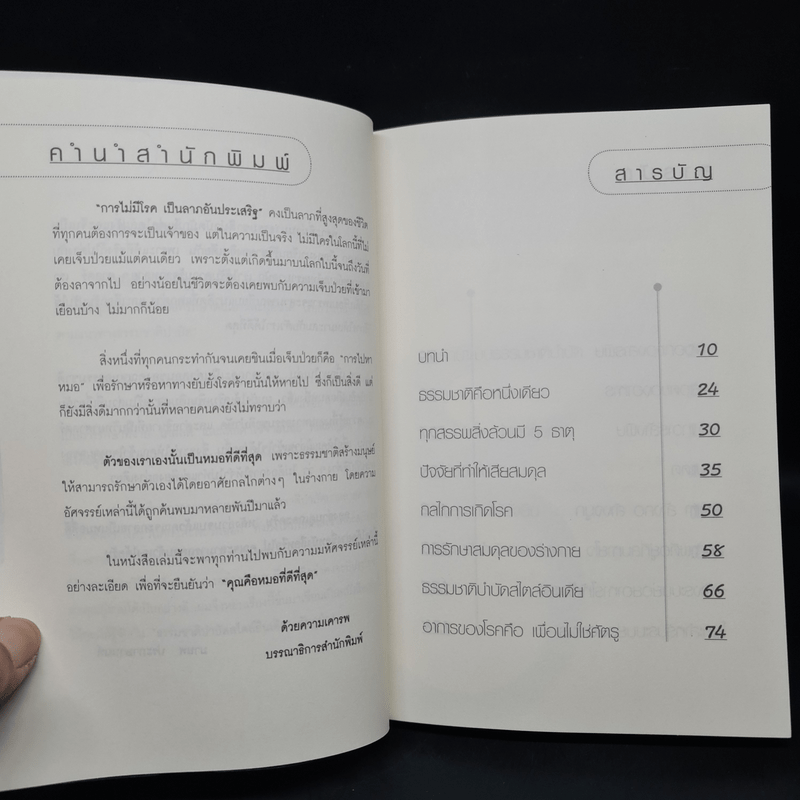 คำนำสำนักพิมพ์
"การไม่มีโรค เป็นลาภอันประเสริฐ" คงเป็นลาภที่สูงสุดของชีวิต
ที่ทุกคนต้องการจะเป็นเจ้าของ แต่ในความเป็นจริง ไม่มีใครในโลกนี้ที่ไม่
เคยเจ็บป่วยแม้แต่คนเดียว เพราะตั้งแต่เกิดขึ้นมาบนโลกใบนี้จนถึงวันที่
ต้องลาจากไป อย่างน้อยในชีวิตจะต้องเคยพบกับความเจ็บป่วยที่เข้ามา
เยือนบ้าง ไม่มากก็น้อย
สิ่งหนึ่งที่ทุกคนกระทำกันจนเคยชินเมื่อเจ็บป่วยก็คือ "การไปหา
หมอ" เพื่อรักษาหรือหาทางยับยั้งโรคร้ายนั้นให้หายไป ซึ่งก็เป็นสิ่งดี แต่
ก็ยังมีสิ่งดีมากกว่านั้นที่หลายคนคงยังไม่ทราบว่า
ตัวของเราเองนั้นเป็นหมอที่ดีที่สุด เพราะธรรมชาติสร้างมนุษย์
ให้สามารถรักษาตัวเองได้โดยอาศัยกลไกต่างๆ ในร่างกาย โดยความ
อัศจรรย์เหล่านี้ได้ถูกค้นพบมาหลายพันปีมาแล้ว
ในหนังสือเล่มนี้จะพาทุกท่านไปพบกับความมหัศจรรย์เหล่านี้
อย่างละเอียด เพื่อที่จะยืนยันว่า "คุณคือหมอที่ดีที่สุด"
ด้วยความเคารพ
บรรณาธิการสำนักพิมพ์
สารบัญ
บทนำ 10
ธรรมชาติคือหนึ่งเดียว 24
ทุกสรรพสิ่งล้วนมี 5 ธาตุ 30
ปัจจัยที่ทำให้เสียสมดุล 35
กลไกการเกิดโรค 50
การรักษาสมดุลของร่างกาย 58
ธรรมชาติบำบัดสไตล์อินเดีย 66
อาการของโรคคือ เพื่อนไม่ใช่ศัตรู 74